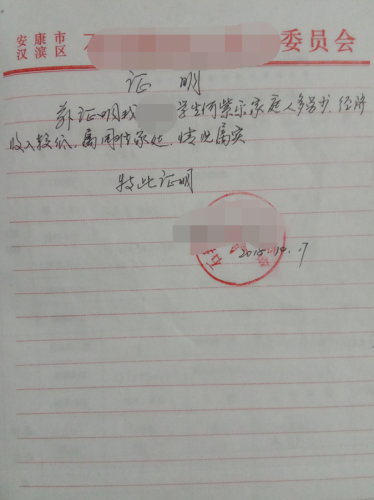 安康市
汉滨区 委员会
证 明
兹证明我 学生何紫乐家庭人多劳少,经济
收入较低,属困难家庭,情况属实
特此证明
2015.10.7